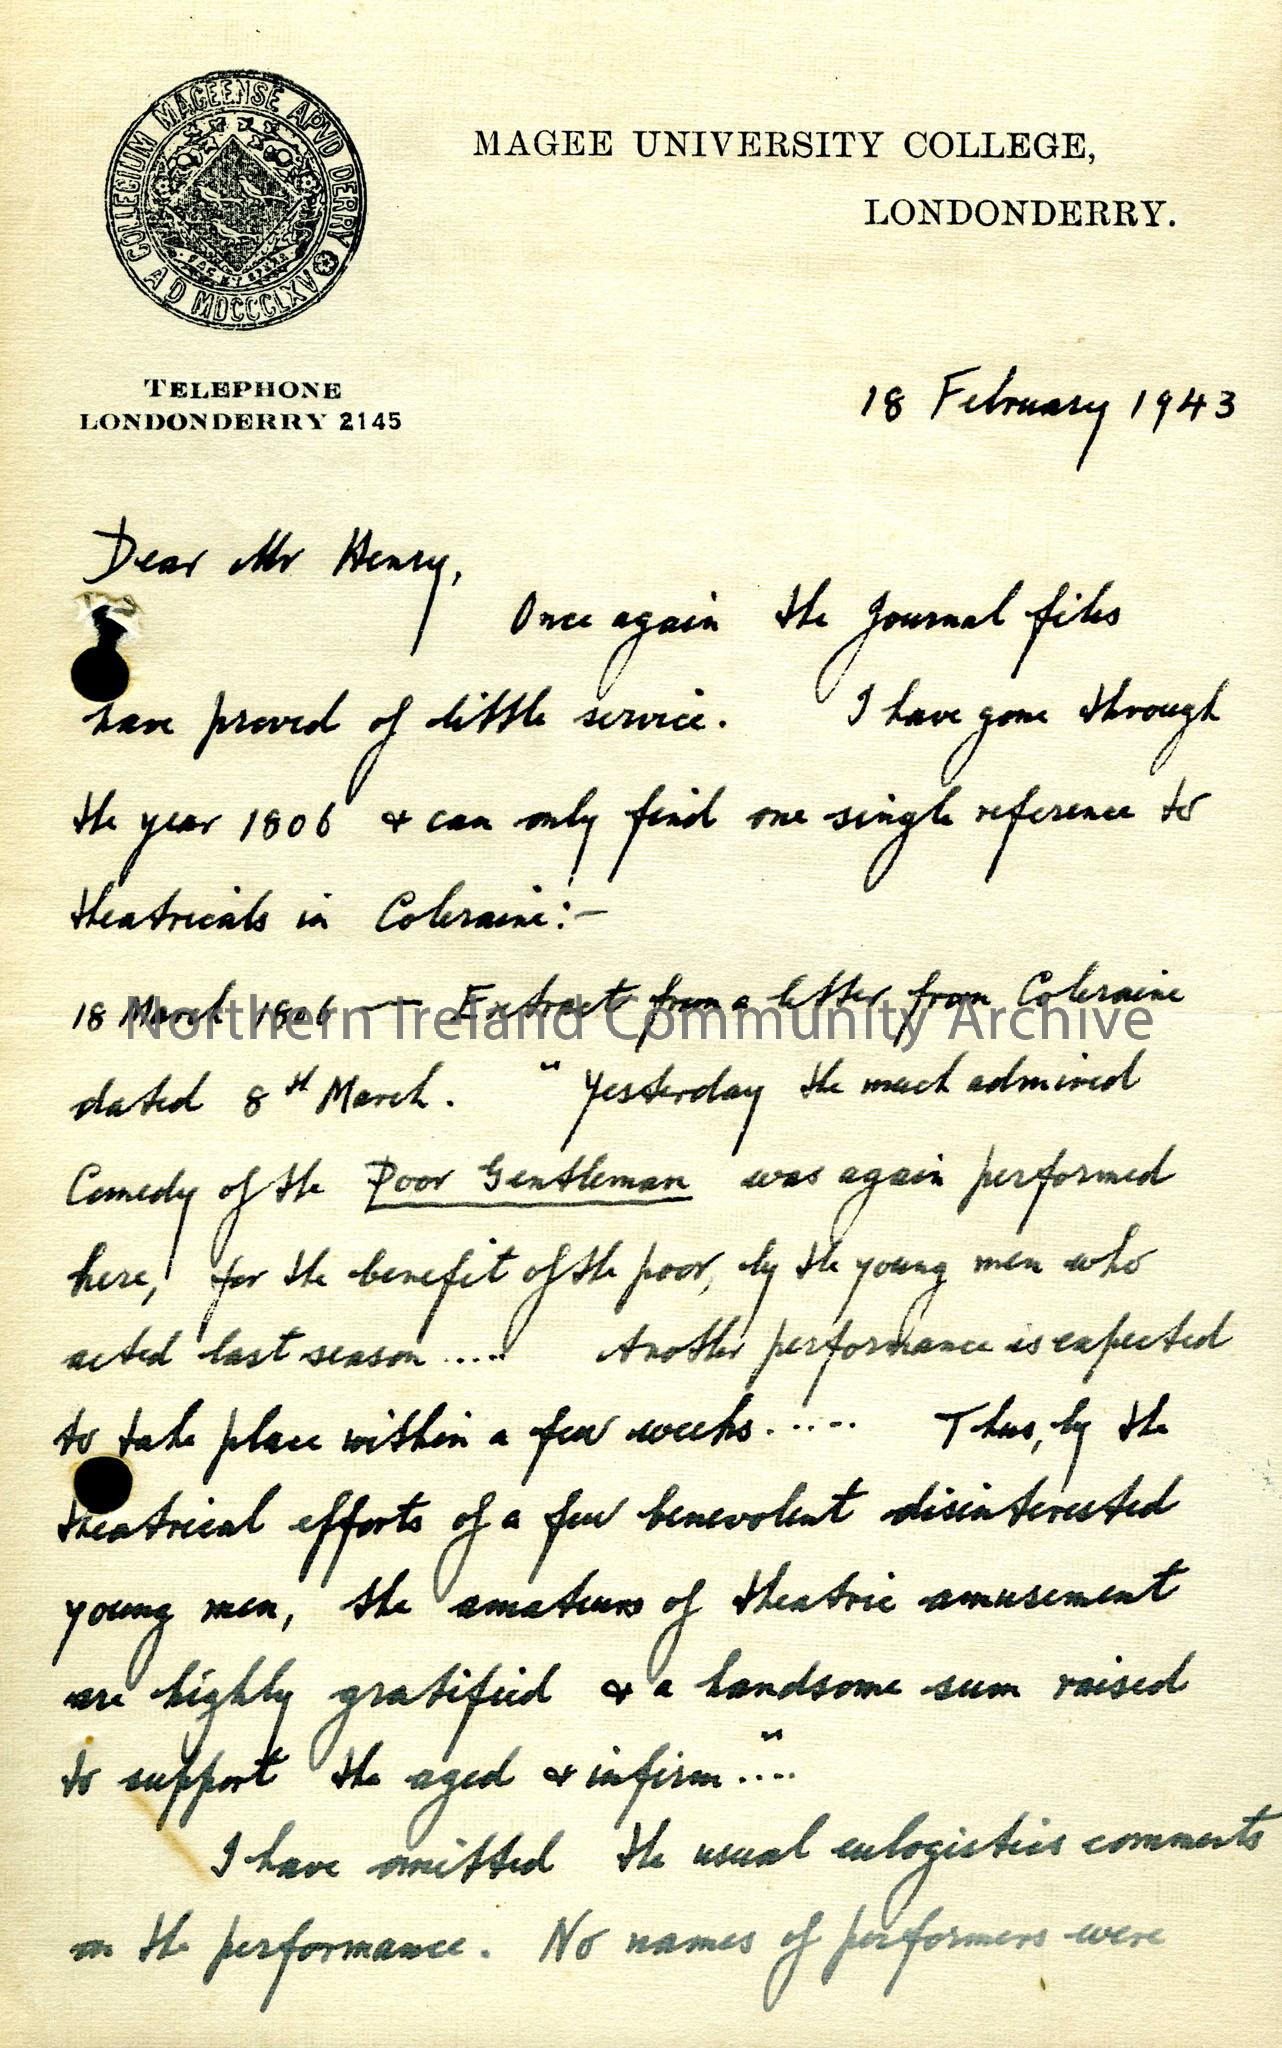 COLLEGIUM MAGEENSE APVD DERRY
A D MDCCCLXV
MAGEE UNIVERSITY COLLEGE,
LONDONDERRY.
TELEPHONE
LONDONDERRY 2145
18 February 1943
Dear Mr Henry,
Once again the Journal files
have proved of little service. I have gone through
the year 1806 & can only find one single reference to
theatricals in Coleraine:-
18 March 1806 — Extract from a letter from Coleraine
Northern Ireland Community Archive
dated 8th March. "Yesterday the much admired
Comedy of the Poor Gentleman was again performed
here, for the benefit of the poor, by the young men who
acted last season ..... Another performance is expected
to take place within a few weeks ..... Thus, by the
theatrical efforts of a few benevolent disinterested
young men, the amateurs of theatric amusement
are highly gratified & a handsome sum raised
to support the aged & infirm "....
I have omitted the usual eulogistic comments
on the performance. No names of performers were